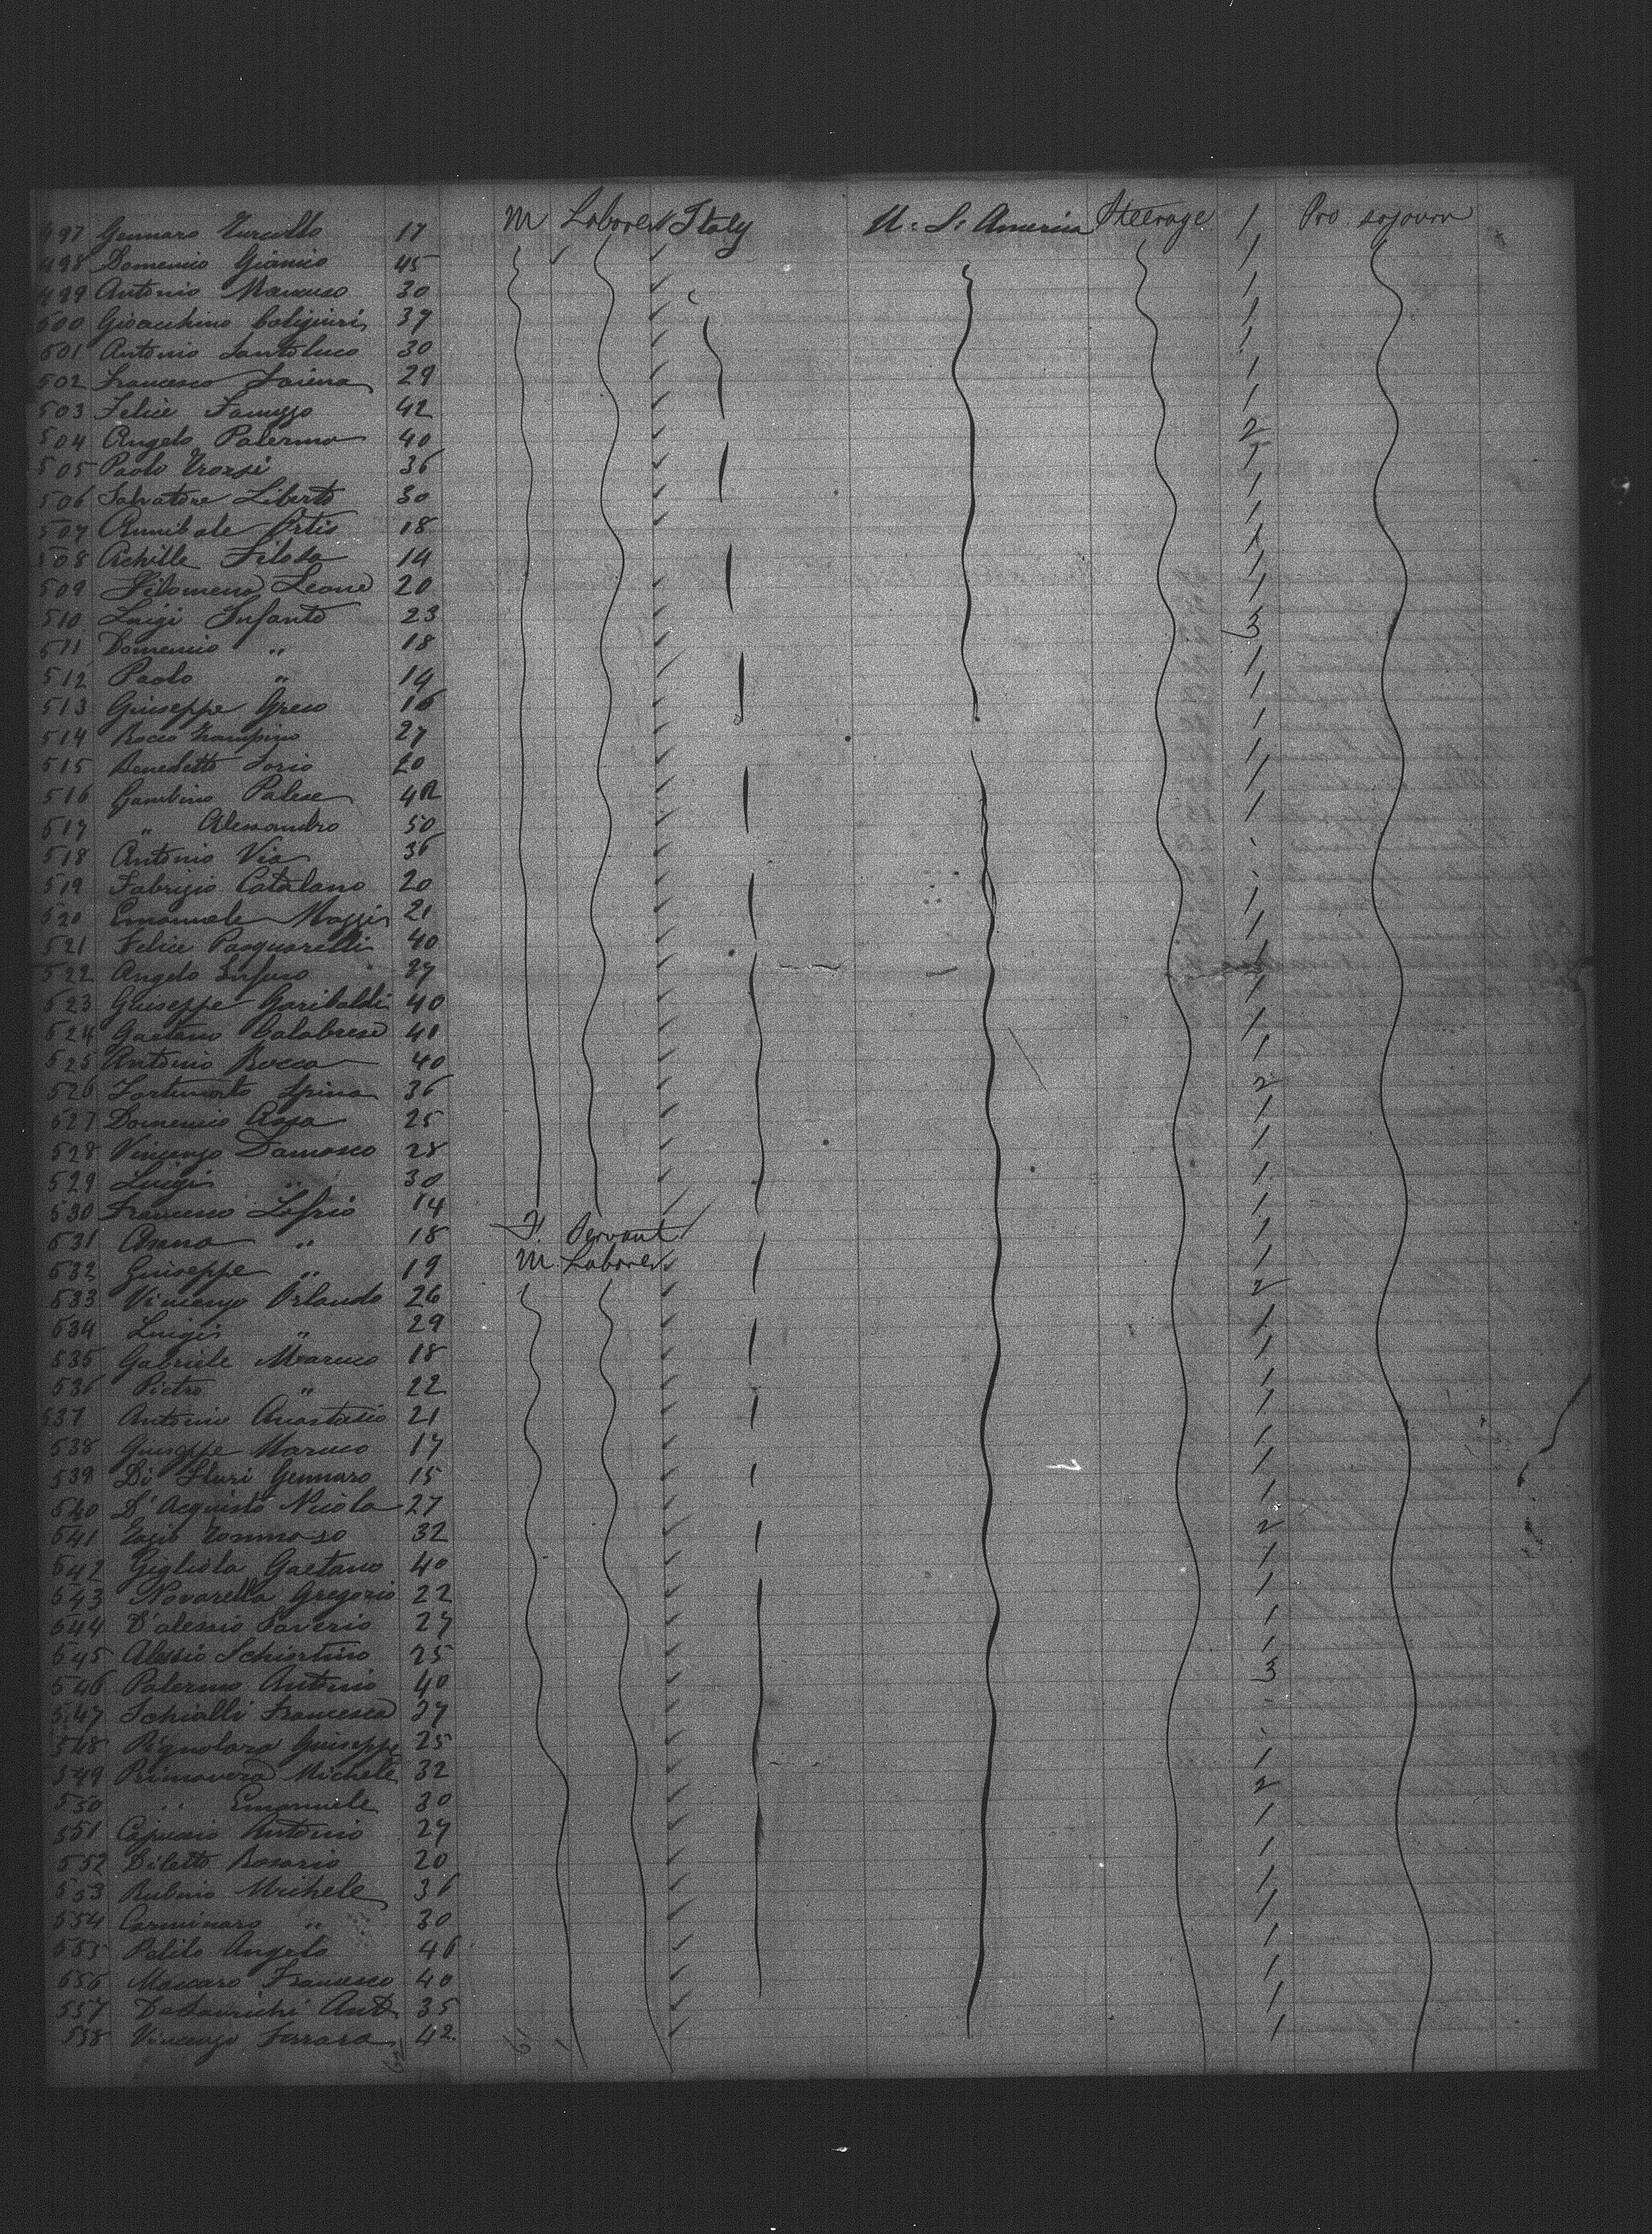 497 Gennaro Turcillo 17 M Laborer Italy U. S. America Steerage 1 Pro. sojourn
498 Domenico Giannio 45 1
499 Antonio Mancuso 30 1
500 Gioacchino 37 1
501 Antonio Santoluco 30 1
502 Francesco 29 1
503 Felice 42 1
504 Angelo Palermo 40 2
505 Paolo 36 1
506 Salvatore Liberto 30 1
507 Annibale Ortis 18 1
508 Achille Filosa 14 1
509 Filomeno Leone 20 1
510 Luigi Infanto 23 3
511 Domenico " 18 1
512 Paolo " 14 1
513 Giuseppe Greco 16 1
514 Rocco Trampino 27 1
515 Benedetto Iorio 20 1
516 Gambino Palese 42 1
517 " Alessandro 50
518 Antonio Via 36
519 Fabrizio Catalano 20 1
520 Emanuele 21 1
521 Felice Pasquarelli 40
522 Angelo 1
523 Giuseppe Garibaldi 40 1
524 Gaetano Calabrese 41 1
525 Antonio Rocca 40 2
526 Fortunato Spina 36 1
527 Domenico Rosa 25 1
528 Vincenzo Damasco 28 1
529 Luigi " 30 1
530 Francesco Lofrio 14 1
531 Anna " 18 F. Servant 1
532 Giuseppe " 19 M. Laborer 1
533 Vincenzo Orlando 26 2
534 Luigi " 29 1
535 Gabriele Maruco 18 1
536 Pietro " 22 1
537 Antonio Anastasio 21 1
538 Giuseppe Maruco 17 1
539 Di Gennaro 15 1
540 D'Acquisto Nicola 27 1
541 Tommaso 32 2
542 Gigliola Gaetano 40 1
543 Novarella Gregorio 22 1
544 D'alessio Saverio 27 1
545 Alessio Schiortino 25 1
546 Palermo Antonio 40 3
547 Schialli Francesca 37
548 Giuseppe 25 1
549 Primavera Michele 32 2
550 " Emanuele 30 1
551 Antonio 27 1
552 Diletto Rosario 20 1
553 Rubino Michele 36 1
554 Carminaro " 30 1
555 Angelo 46 1
556 Mascaro Francesco 40 1
557 Ant 35 1
558 Vincenzo Ferrara 42 1